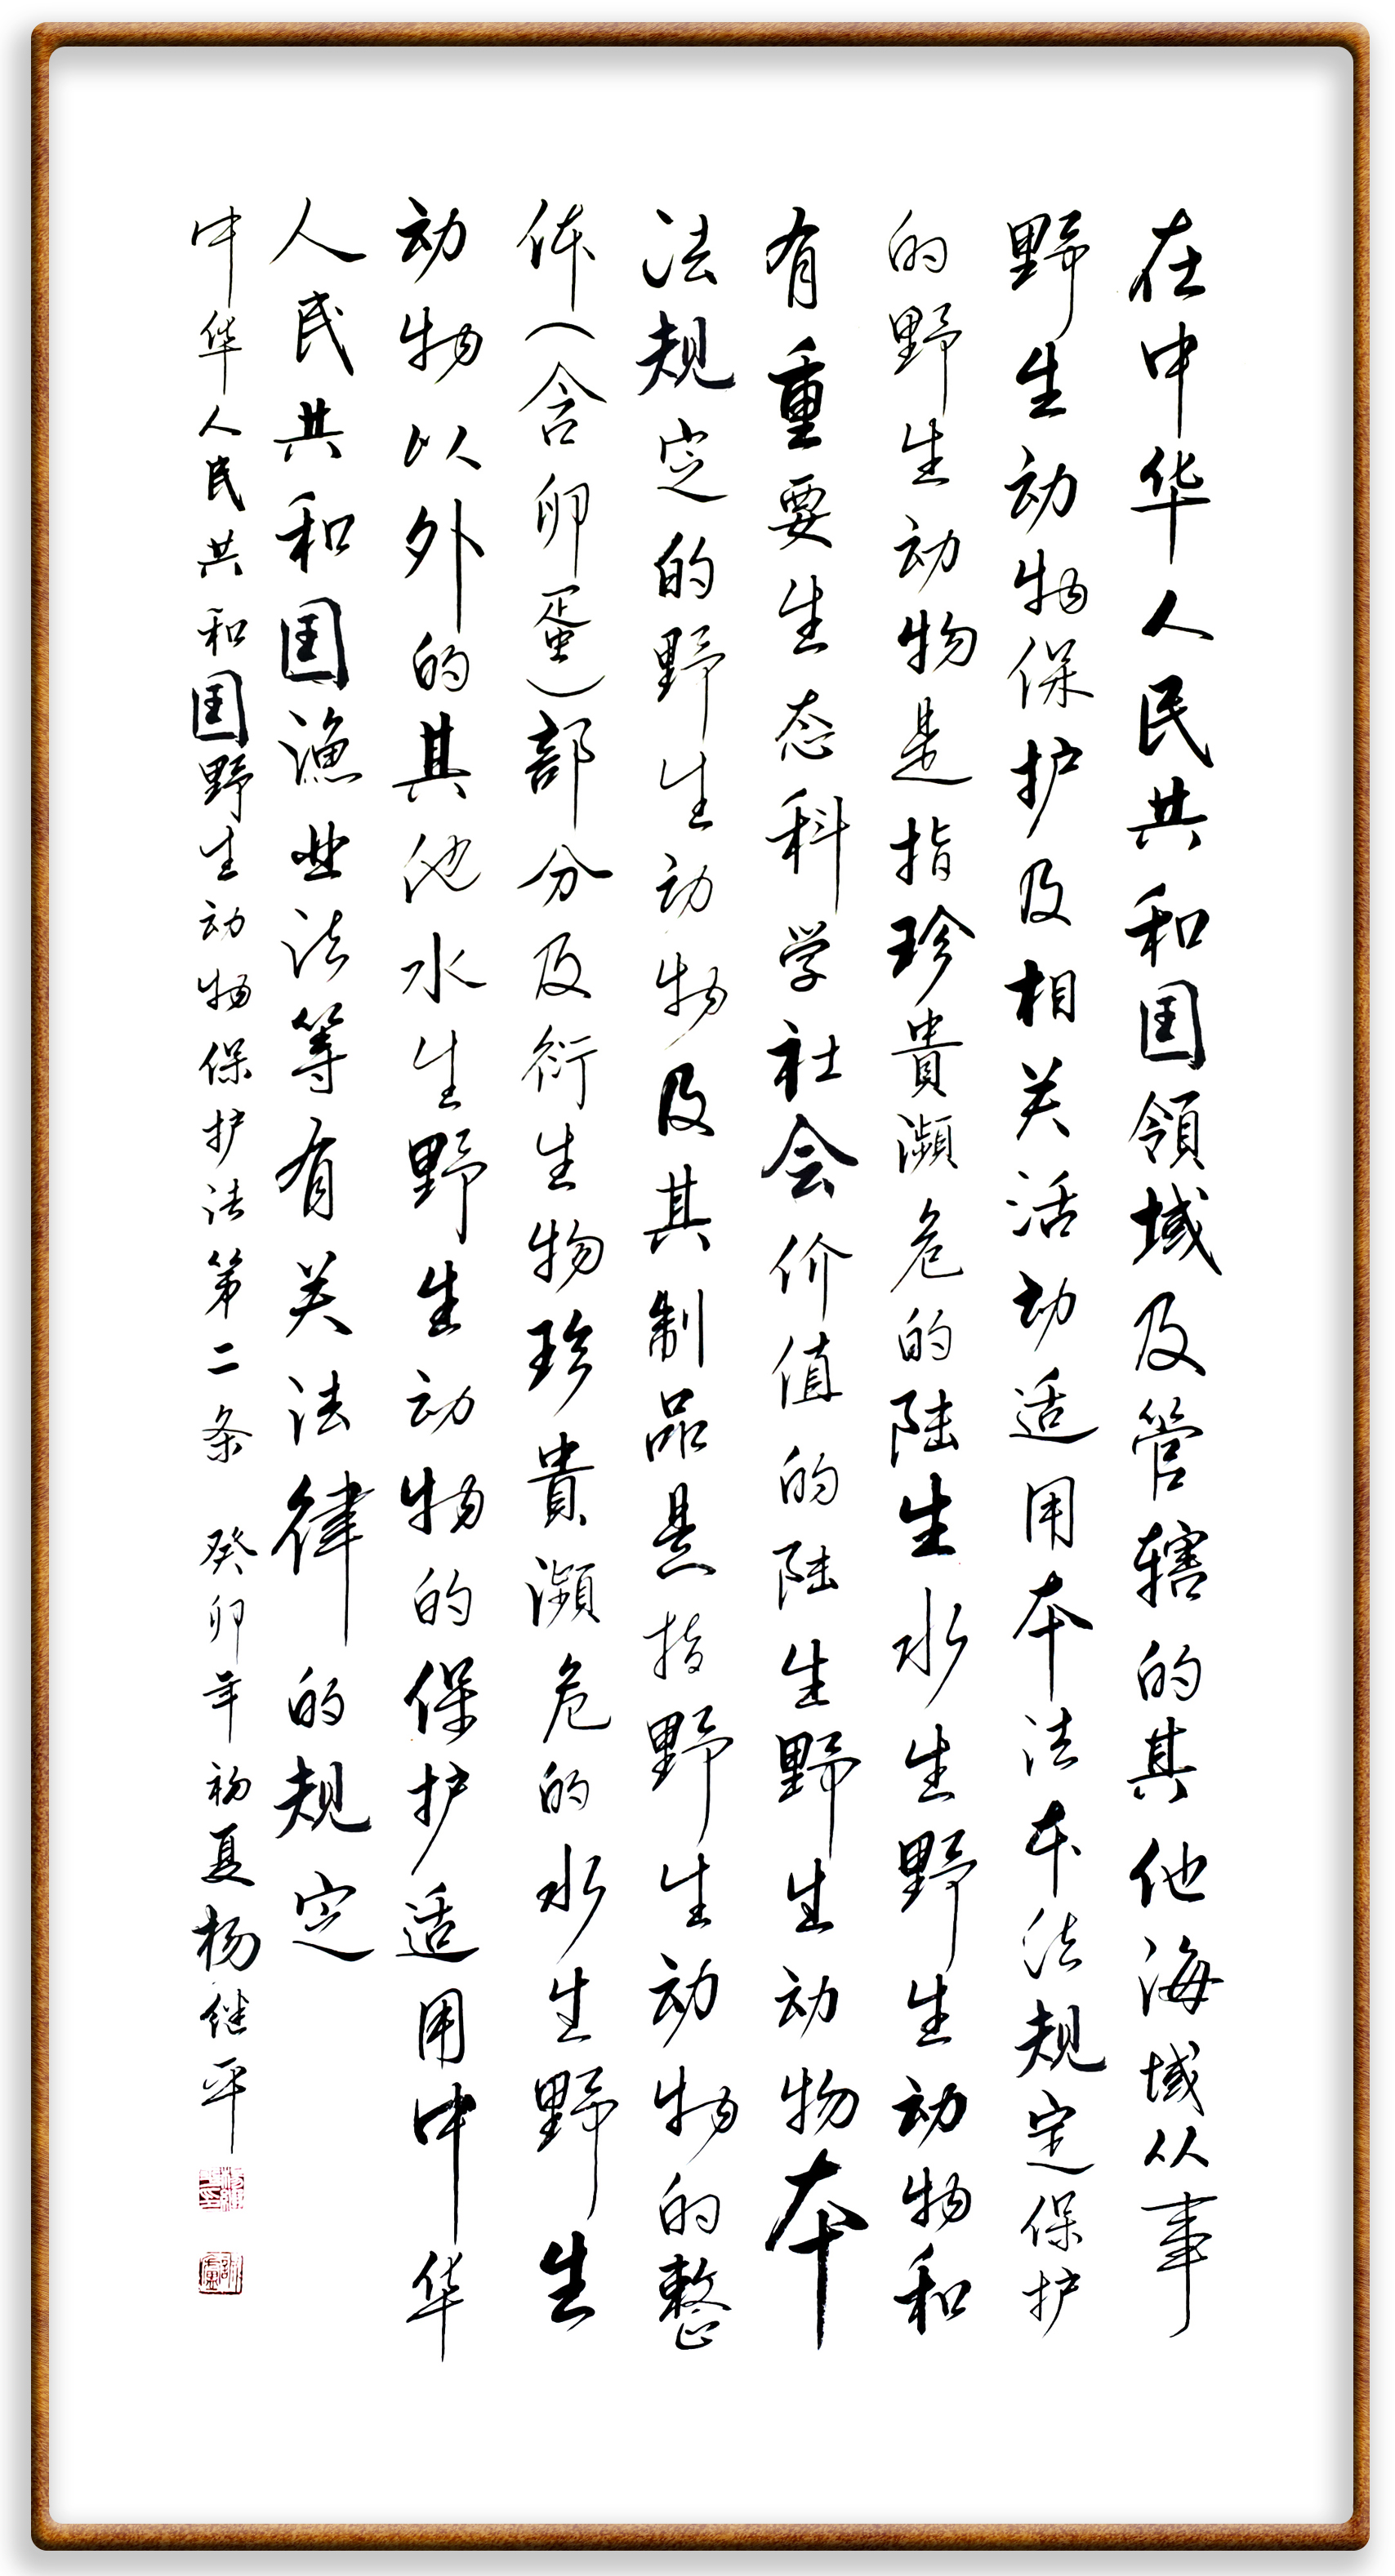 在中华人民共和国领域及管辖的其他海域从事
野生动物保护及相关活动适用本法本法规定保护
的野生动物是指珍貴濒危的陆生水生野生动物和
有重要生态科学社会价值的陆生野生动物本
法规定的野生动物及其制品是指野生动物的整
体(含卵蛋)部分及衍生物珍貴濒危的水生野生
动物以外的其他水生野生动物的保护适用中华
人民共和国渔业法等有关法律的规定
中华人民共和国野生动物保护法第二条 癸卯年初夏杨继平